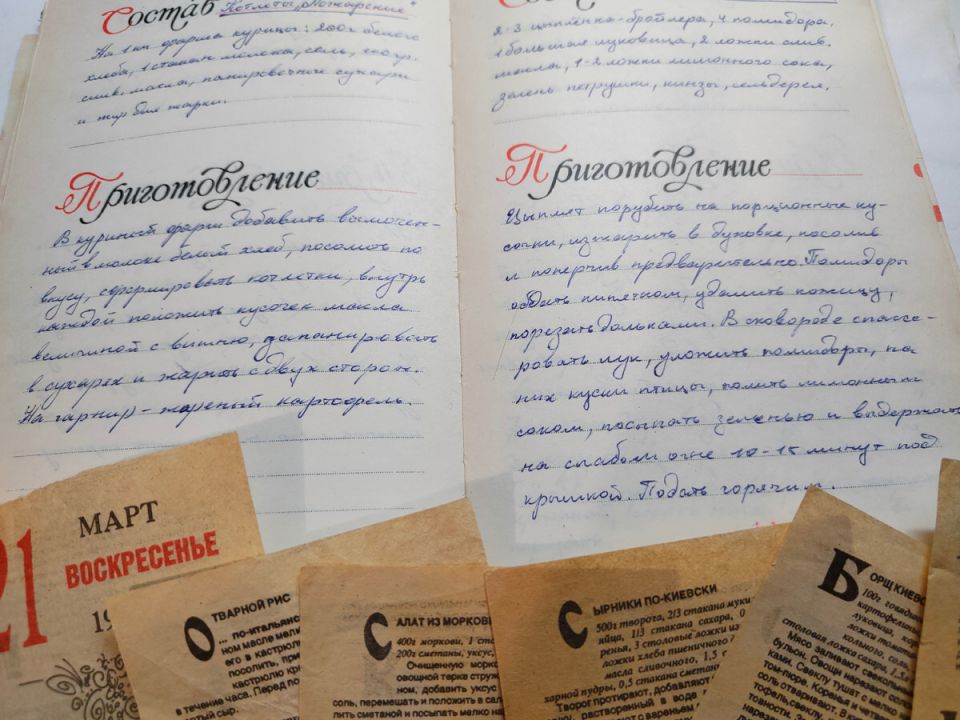 Состав Котлеты „Пожарские"
На 1 кг фарша курицы: 200г белого
хлеба, 1 стакан молока, соль, 100гр.
слив. масла, панировочные сухари
и жир для жарки.
Приготовление
В куриный фарш добавить вымочен-
ный в молоке белый хлеб, посолить по
вкусу, сформировать котлетки, внутрь
каждой положить кусочек масла
величиной с вишню, запанировать
в сухарях и жарить с двух сторон.
На гарнир - жареный картофель.
Состав
2-3 цыпленка-бройлера, 4 помидора,
1 большая луковица, 2 ложки слив.
масла, 1-2 ложки лимонного сока,
зелень петрушки, кинзы, сельдерея.
Приготовление
Цыплят порубить на порционные ку-
сочки, изжарить в духовке, посолив
и поперчив предварительно. Помидоры
обдать кипятком, удалить кожицу,
порезать дольками. В сковороде спассе-
ровать лук, уложить помидоры, на
них куски птицы, полить лимонным
соком, посыпать зеленью и выдержать
на слабом огне 10-15 минут под
крышкой. Подать горячим.
21
МАРТ
ВОСКРЕСЕНЬЕ
19
ОТВАРНОЙ РИС
... по-итальянс
ном масле мелко
его в кастрюлю
посолить, при
кастрюлю кр
в течение часа. Перед по
тый сыр.
САЛАТ ИЗ МОРКОВИ
400г моркови, 1 ста
200г сметаны, уксус,
Очищенную морко
овощной терке струж
ном, добавить уксус
соль, перемешать и положить в сала
лить сметаной и посыпать мелко на
СЫРНИКИ ПО-КИЕВСКИ
500г творога, 2/3 стакана муки
яйца, 1/3 стакана сахара, 0
ренья, 3 столовые ложки из
ложки хлеба пшеничного
масла сливочного, 1,5 г
харной пудры, 0,5 стакана сметаны
Творог протирают, добавляют
растворенный в воде
с вареньем
БОРЩ КИЕВС
100г говядины
картофелины
луковица, ко
кольного, соль,
ложки томатно
столовая ложка сахара, 1,5 л
Мясо заливают свекольны
бульон. Овощи нарезают со
ками. Свеклу тушат с мелко
том-пюре. Коренья и ч
соль отварить. В
тофель, свеклу
товности.